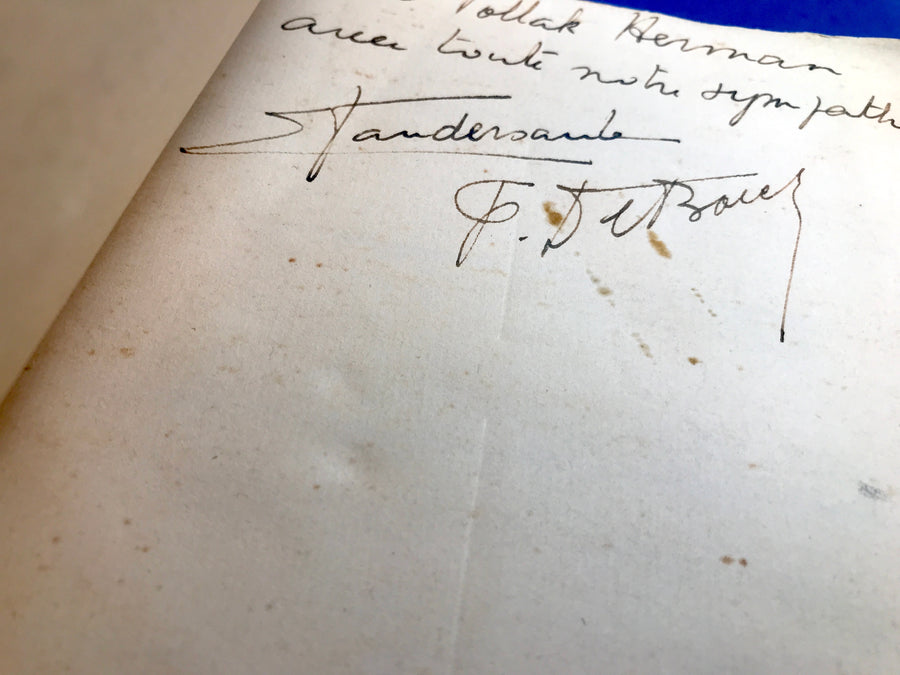 Pollak Herman
avec toute notre sympath
Vandersande
F. De Boeck